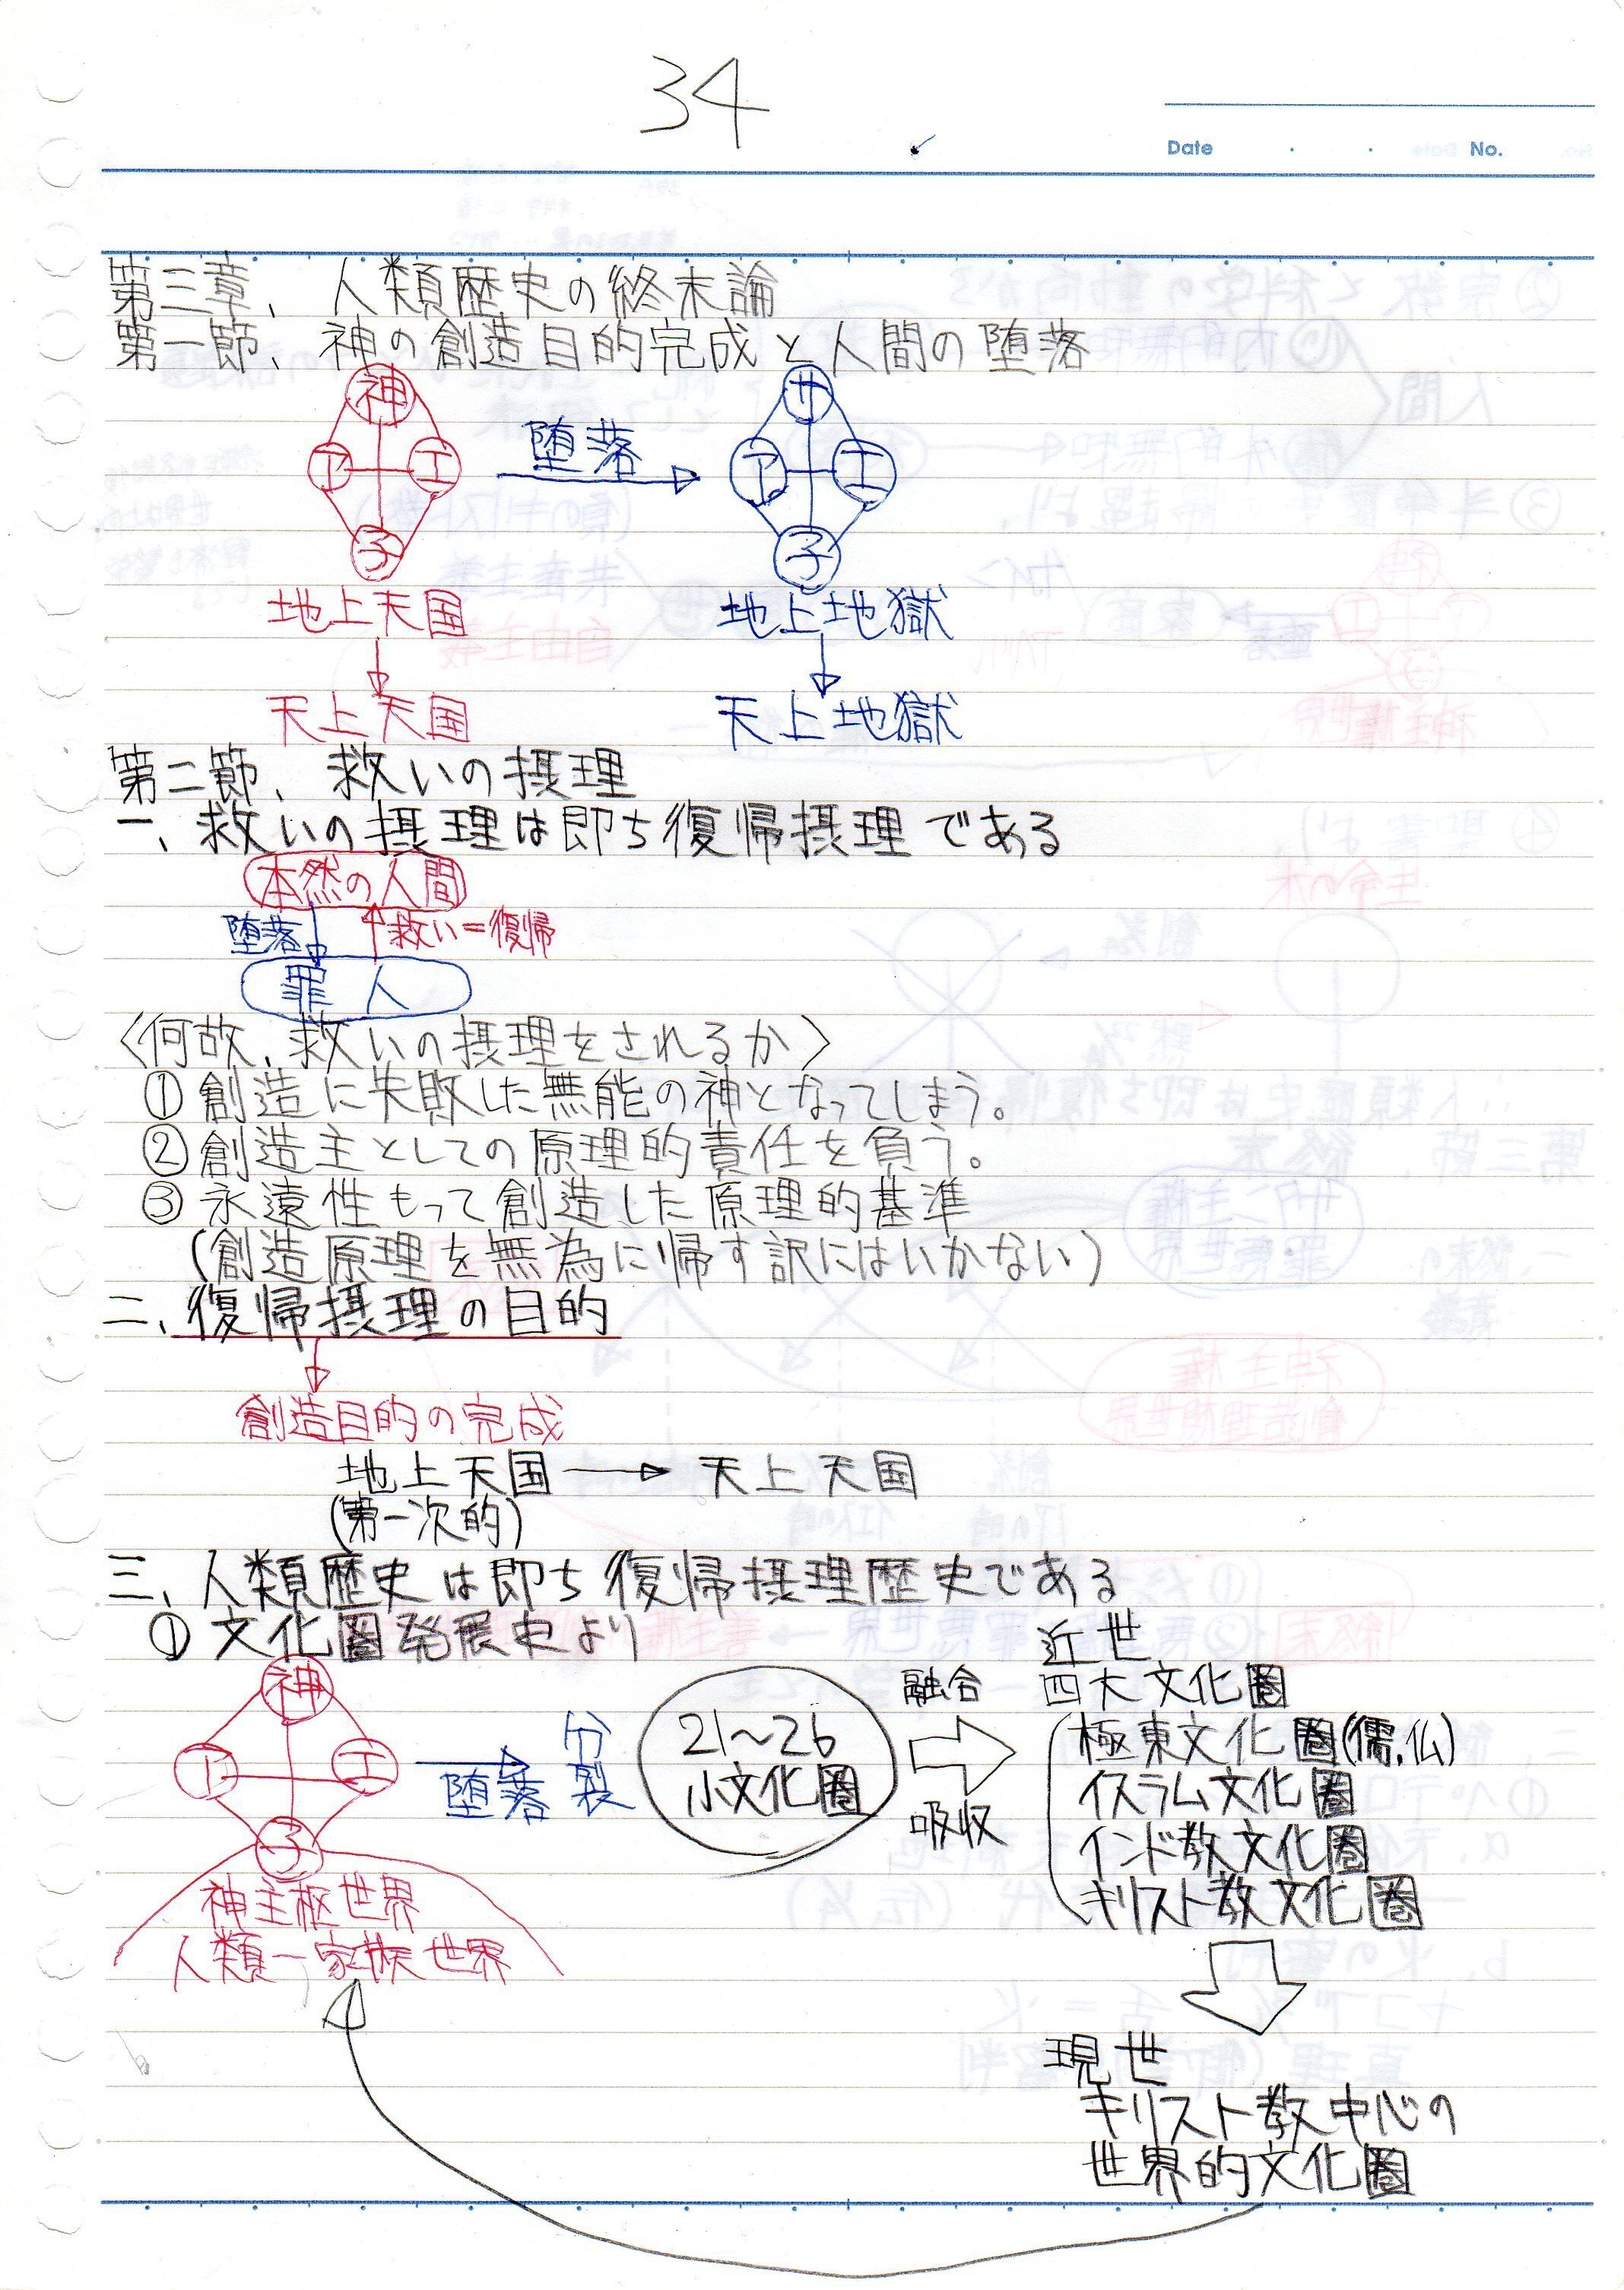 34
Date ・ ・ No.
第三章、人類歴史の終末論
第一節、神の創造目的完成と人間の堕落
神 サ
堕落
ア エ ア エ
子 子
地上天国 地上地獄
天上天国 天上地獄
第二節、救いの摂理
一、救いの摂理は即ち復帰摂理である
本然の人間
堕落 救い=復帰
罪人
〈何故、救いの摂理をされるか〉
①創造に失敗した無能の神となってしまう。
②創造主としての原理的責任を負う。
③永遠性もって創造した原理的基準
(創造原理を無為に帰す訳にはいかない)
二、復帰摂理の目的
創造目的の完成
地上天国 → 天上天国
(第一次的)
三、人類歴史は即ち復帰摂理歴史である
①文化圏発展史より
神
ア エ
子
神主枢世界
人類一家族世界
堕落
分裂
21〜26
小文化圏
融合
吸収
近世
四大文化圏
極東文化圏(儒,仏)
イスラム文化圏
インド教文化圏
キリスト教文化圏
現世
キリスト教中心の
世界的文化圏